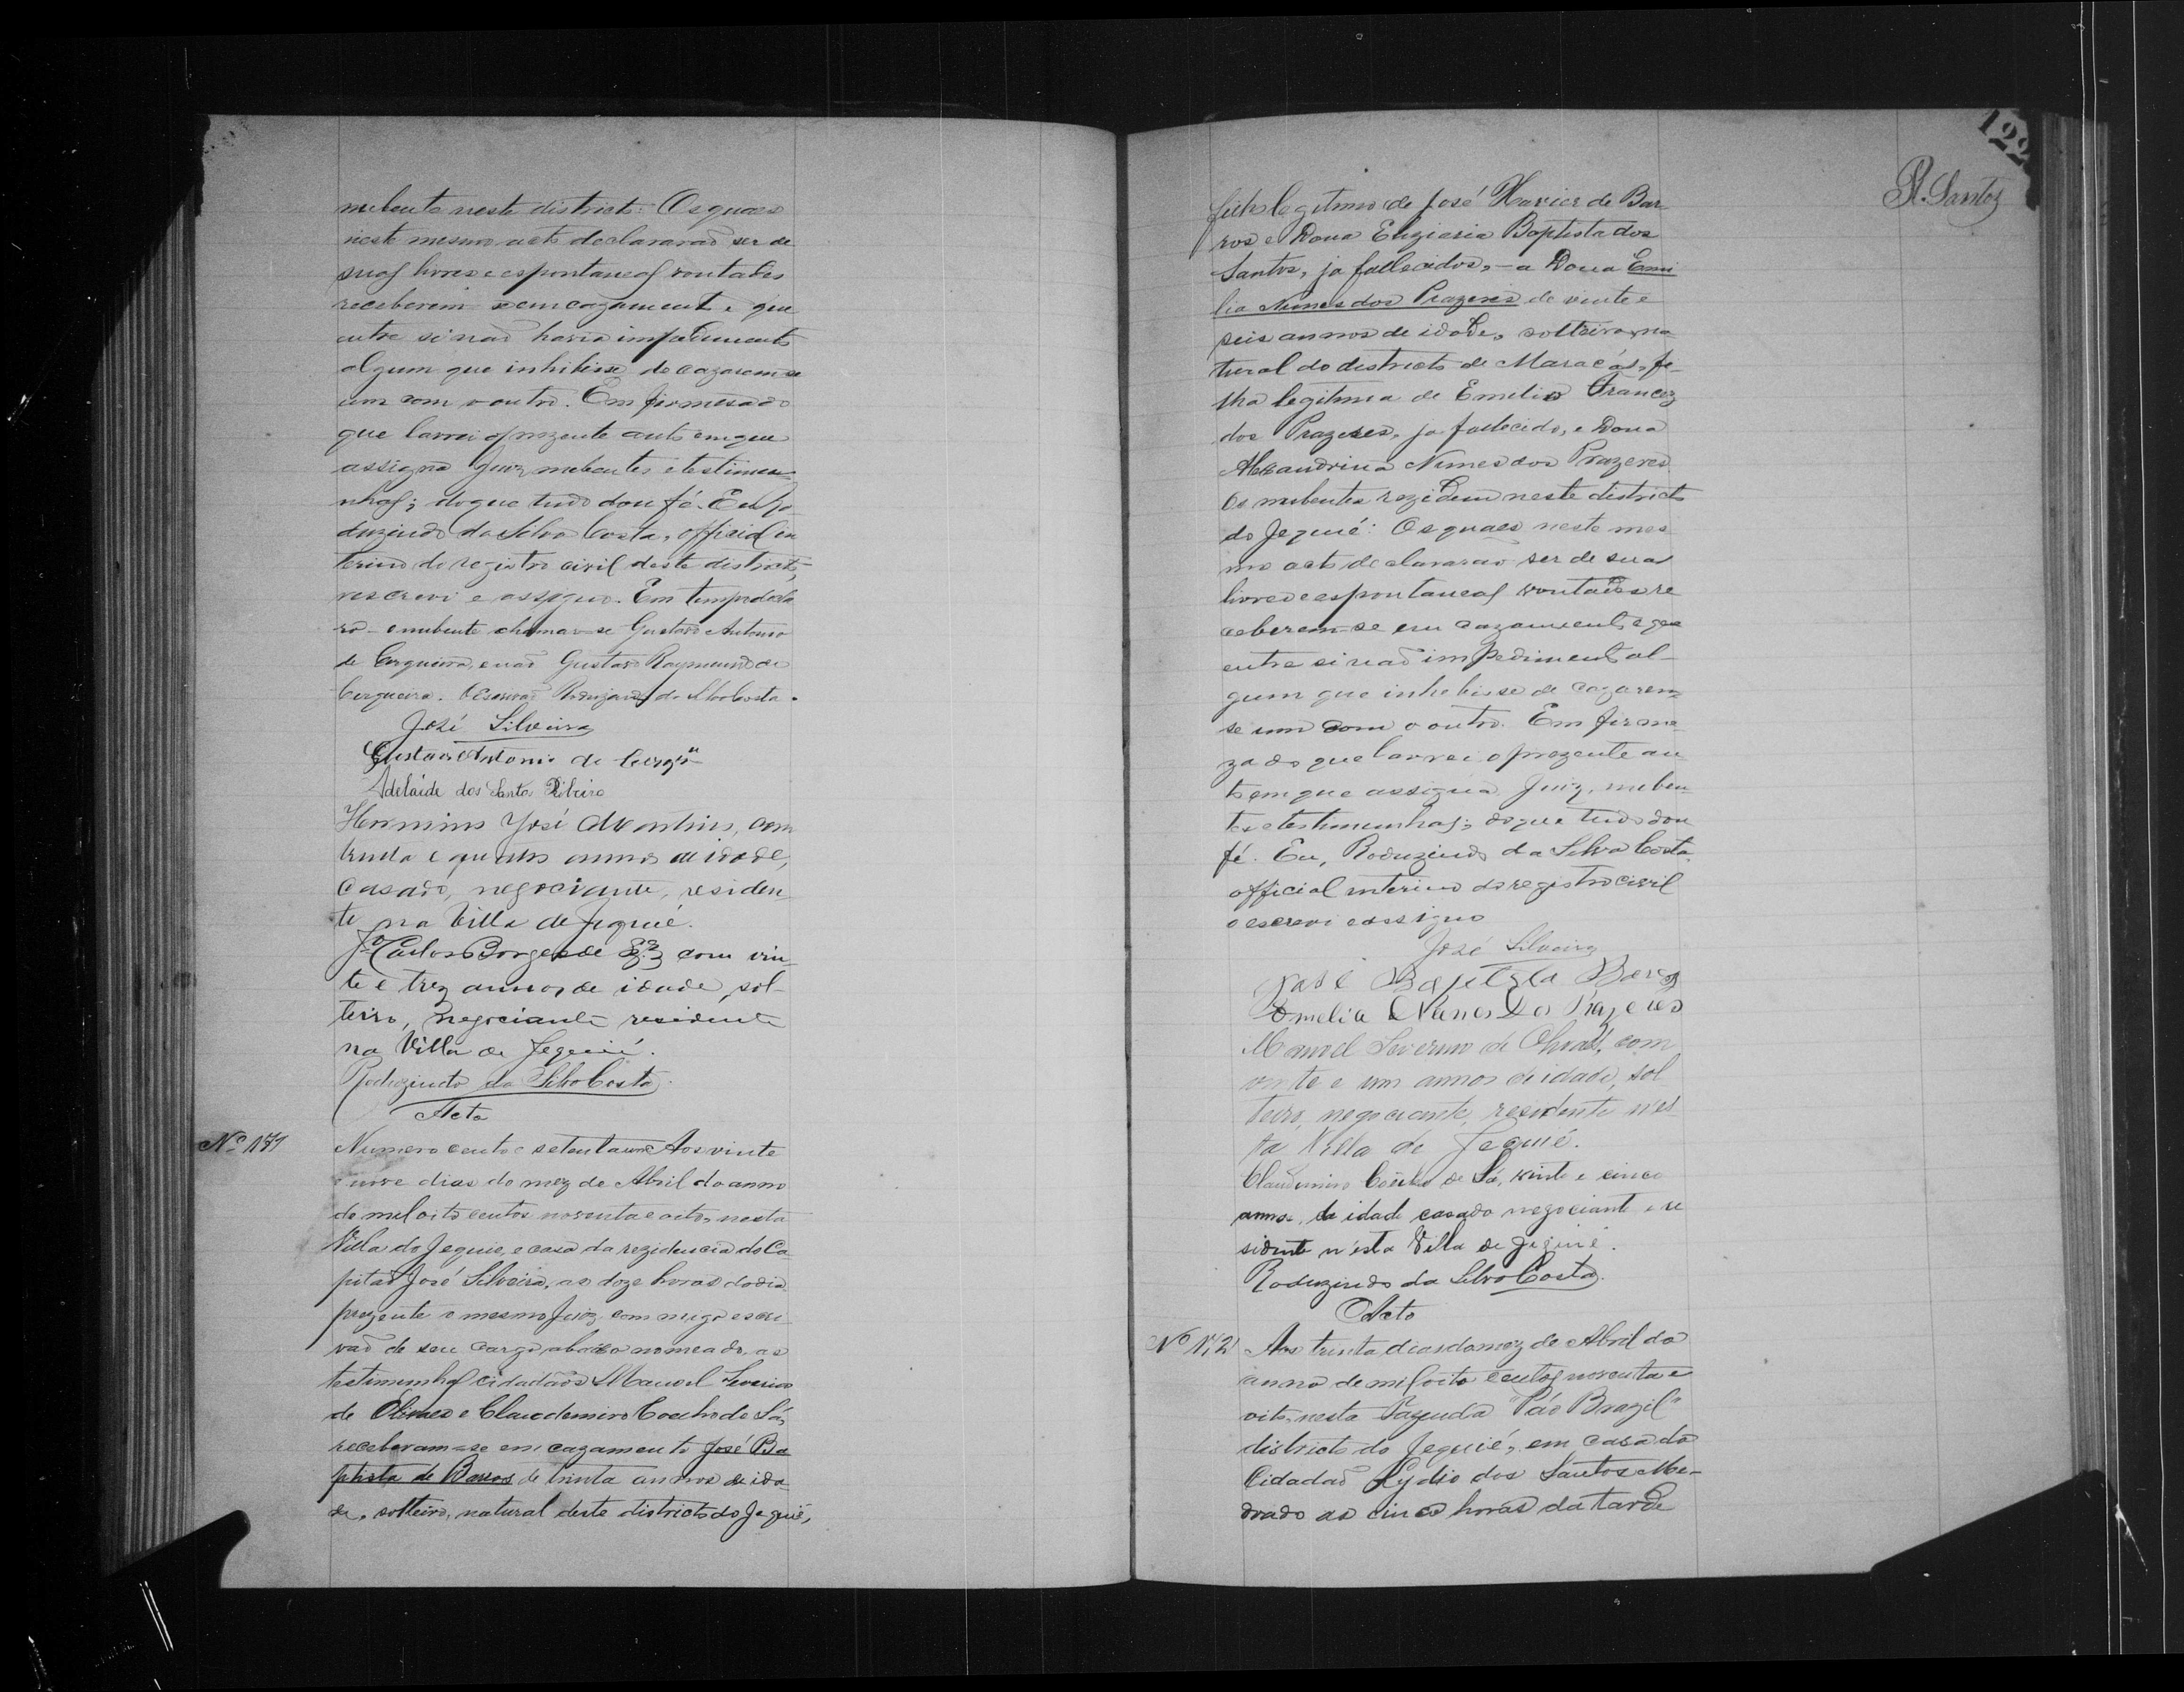 nubente neste districto: Os quaes
neste mesmo acto declararaõ ser de
suas livres e espontaneas vontades
receberem-se em cazamento e que
entre si naõ havia impedimento
algum que inhibisse de cazarem-se
um com o outro. Em firmesa do
que lavrei o prezente auto em que
assigna Juiz, nubentes e testimu-
nhas; do que tudo dou fé. Eu Ro
duzindo da Silva Costa, official in
terino do registro civil deste districto,
escrevi e assigno. Em tempo decla
ro - o nubente chama-se Gustavo Antonio
de Cerqueira, e naõ Gustavo Raymundo de
Cerqueira. O Escrivaõ Roduzindo da Silva Costa.
José Silveira
Gustavo Antonio de Cerqrª
Adelaide dos Santos Ribeiro
Herminio José Martins, com
trinta e quatro annos de idade,
casado, negociante, residen
te na Villa de Jequié.
Carlos Borges de com vin
te e trez annos de idade, sol-
teiro, negociante residente
na Villa de Jequié.
Roduzindo da Silva Costa.
Acto
Nº 171
Numero cento e setenta um Aos vinte
e nove dias do mez de Abril do anno
de mil oito centos noventa e oito, nesta
Villa do Jequie, e casa da rezidencia do Ca
pitaõ José Silveira, as doze horas do dia
prezente o mesmo Juiz, commigo escri
vaõ de seu cargo abaixo nomeado, as
testimunhas cidadãos Manoel Severino
de e Claudemiro Coelho de Sá,
receberam-se em cazamento José Ba
ptista de Barros de trinta annos de ida
de, solteiro, natural deste districto do Jequié,
122
R. Santos
filho legitimo de José Xavier de Bar
ros e Dona Baptista dos
Santos, ja fallecidos, - a Dona Emi
lia Nunes dos Prazeres de vinte e
seis annos de idade, solteira, na
tural do districto de Maracás, fi-
lha legitima de Emilio Francez
dos Prazeres, ja fallecido, e Dona
Alexandrina Nunes dos Prazeres.
Os nubentes rezidem neste districto
do Jequié: Os quaes neste mes
mo acto declararaõ ser de suas
livres e espontaneas vontades re
ceberem-se em cazamento e que
entre si naõ impedimento al-
gum que inhebisse de cazarem
se um com o outro. Em firme
za do que lavrei o prezente au
to em que assigna Juiz, nuben
tes e testimunhas; do que tudo dou
fé. Eu, Roduzindo da Silva Costa
official interino do registro civil
o escrevi e assigno
José Silveira
José Baptista Barros
Emelia Nunes Dos Prazeres
Manoel Severino de com
vinte e um annos de idade, sol
teiro, negociante, residente nes
ta Villa de Jequié.
Claudemiro Coelho de Sá, vinte e cinco
annos, de idade casado negociante e re
sidente n'esta Villa de Jequié.
Roduzindo da Silva Costa.
Acto
Nº 172
Aos trinta dias do mez de Abril do
anno de mil oito centos noventa e
oito, nesta Fazenda "Páo Brazil"
districto do Jequié, em casa do
Cidadaõ Lydio dos Santos Me-
drado as cinco horas da tarde